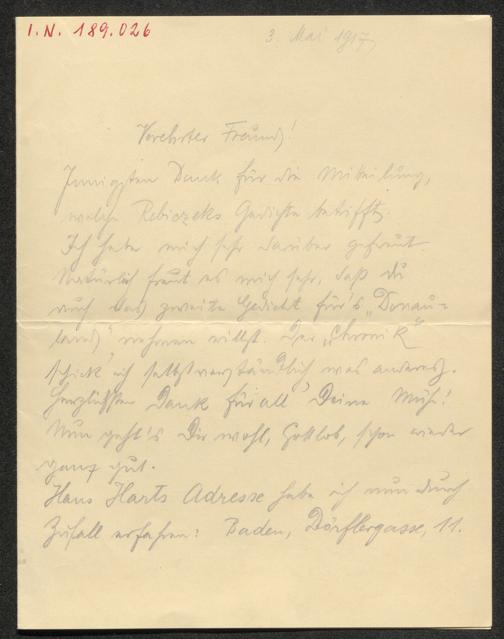 I.N. 189.026
3. Mai 1917
Verehrter Freund!
Innigsten Dank für die Mitteilung,
welche Rebiczeks Gedichte betrifft.
Ich habe mich sehr darüber gefreut
Natürlich freut es mich sehr, daß du
auch das zweite Gedicht für's „Donau=
land" nehmen willst. Der „Chronik"
schick' ich selbstverständlich was anderes.
Herzlichsten Dank für all' Deine Müh'!
Nun geht's Dir wohl, Gottlob, schon wieder
ganz gut.
Hans Harts Adresse habe ich nun durch
Zufall erfahren: Baden, Dörflergasse, 11.